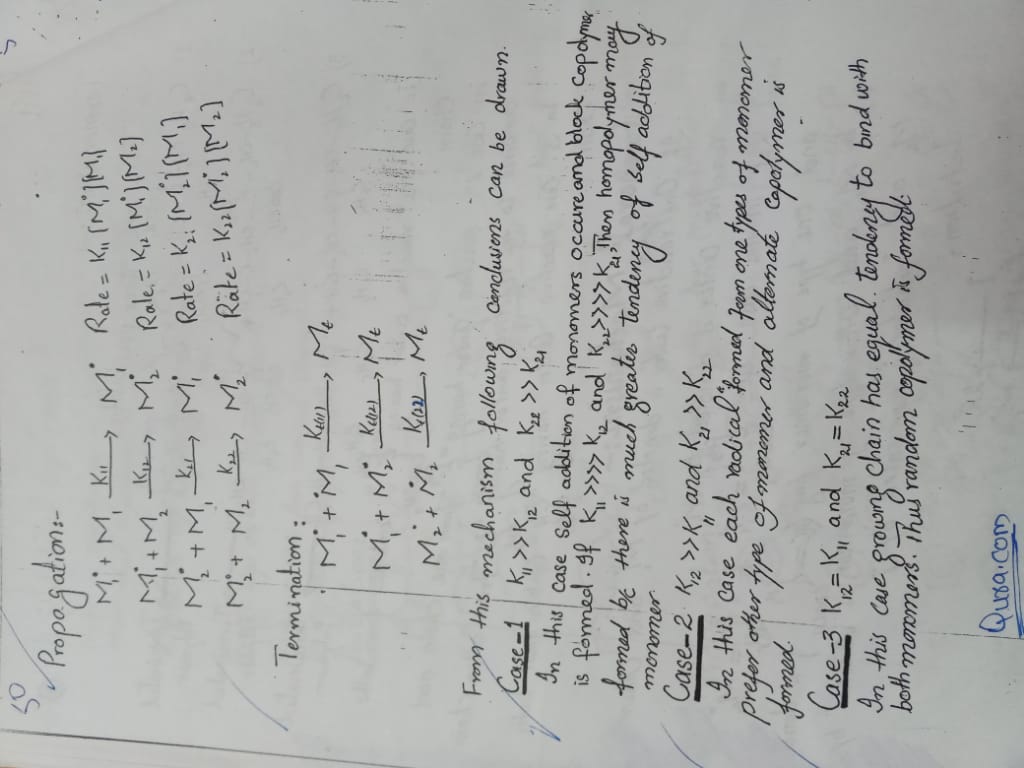 50
Propagation:-
M₁• + M₁ —K₁₁→ M₁• Rate = K₁₁ [M₁•][M₁]
M₁• + M₂ —K₁₂→ M₂• Rate = K₁₂ [M₁•][M₂]
M₂• + M₁ —K₂₁→ M₁• Rate = K₂₁ [M₂•][M₁]
M₂• + M₂ —K₂₂→ M₂• Rate = K₂₂ [M₂•][M₂]
Termination:
M₁• + M₁• —Kₜ(11)→ Mt
M₁• + M₂• —Kₜ(12)→ Mt
M₂• + M₂• —Kₜ(22)→ Mt
From this mechanism following conclusions can be drawn.
Case-1 K₁₁ >> K₁₂ and K₂₂ >> K₂₁
In this case self addition of monomers occure and block copolymer
is formed. If K₁₁ >>>> K₁₂ and K₂₂ >>>> K₂₁ Then homopolymer may
formed b/c there is much greater tendency of self addition of
monomer.
Case-2 K₁₂ >> K₁₁ and K₂₁ >> K₂₂
In this case each radical formed from one types of monomer
prefer other type of monomer and alternate copolymer is
formed.
Case-3 K₁₂ = K₁₁ and K₂₁ = K₂₂
In this case growing chain has equal tendency to bind with
both monomers. Thus random copolymer is formed.